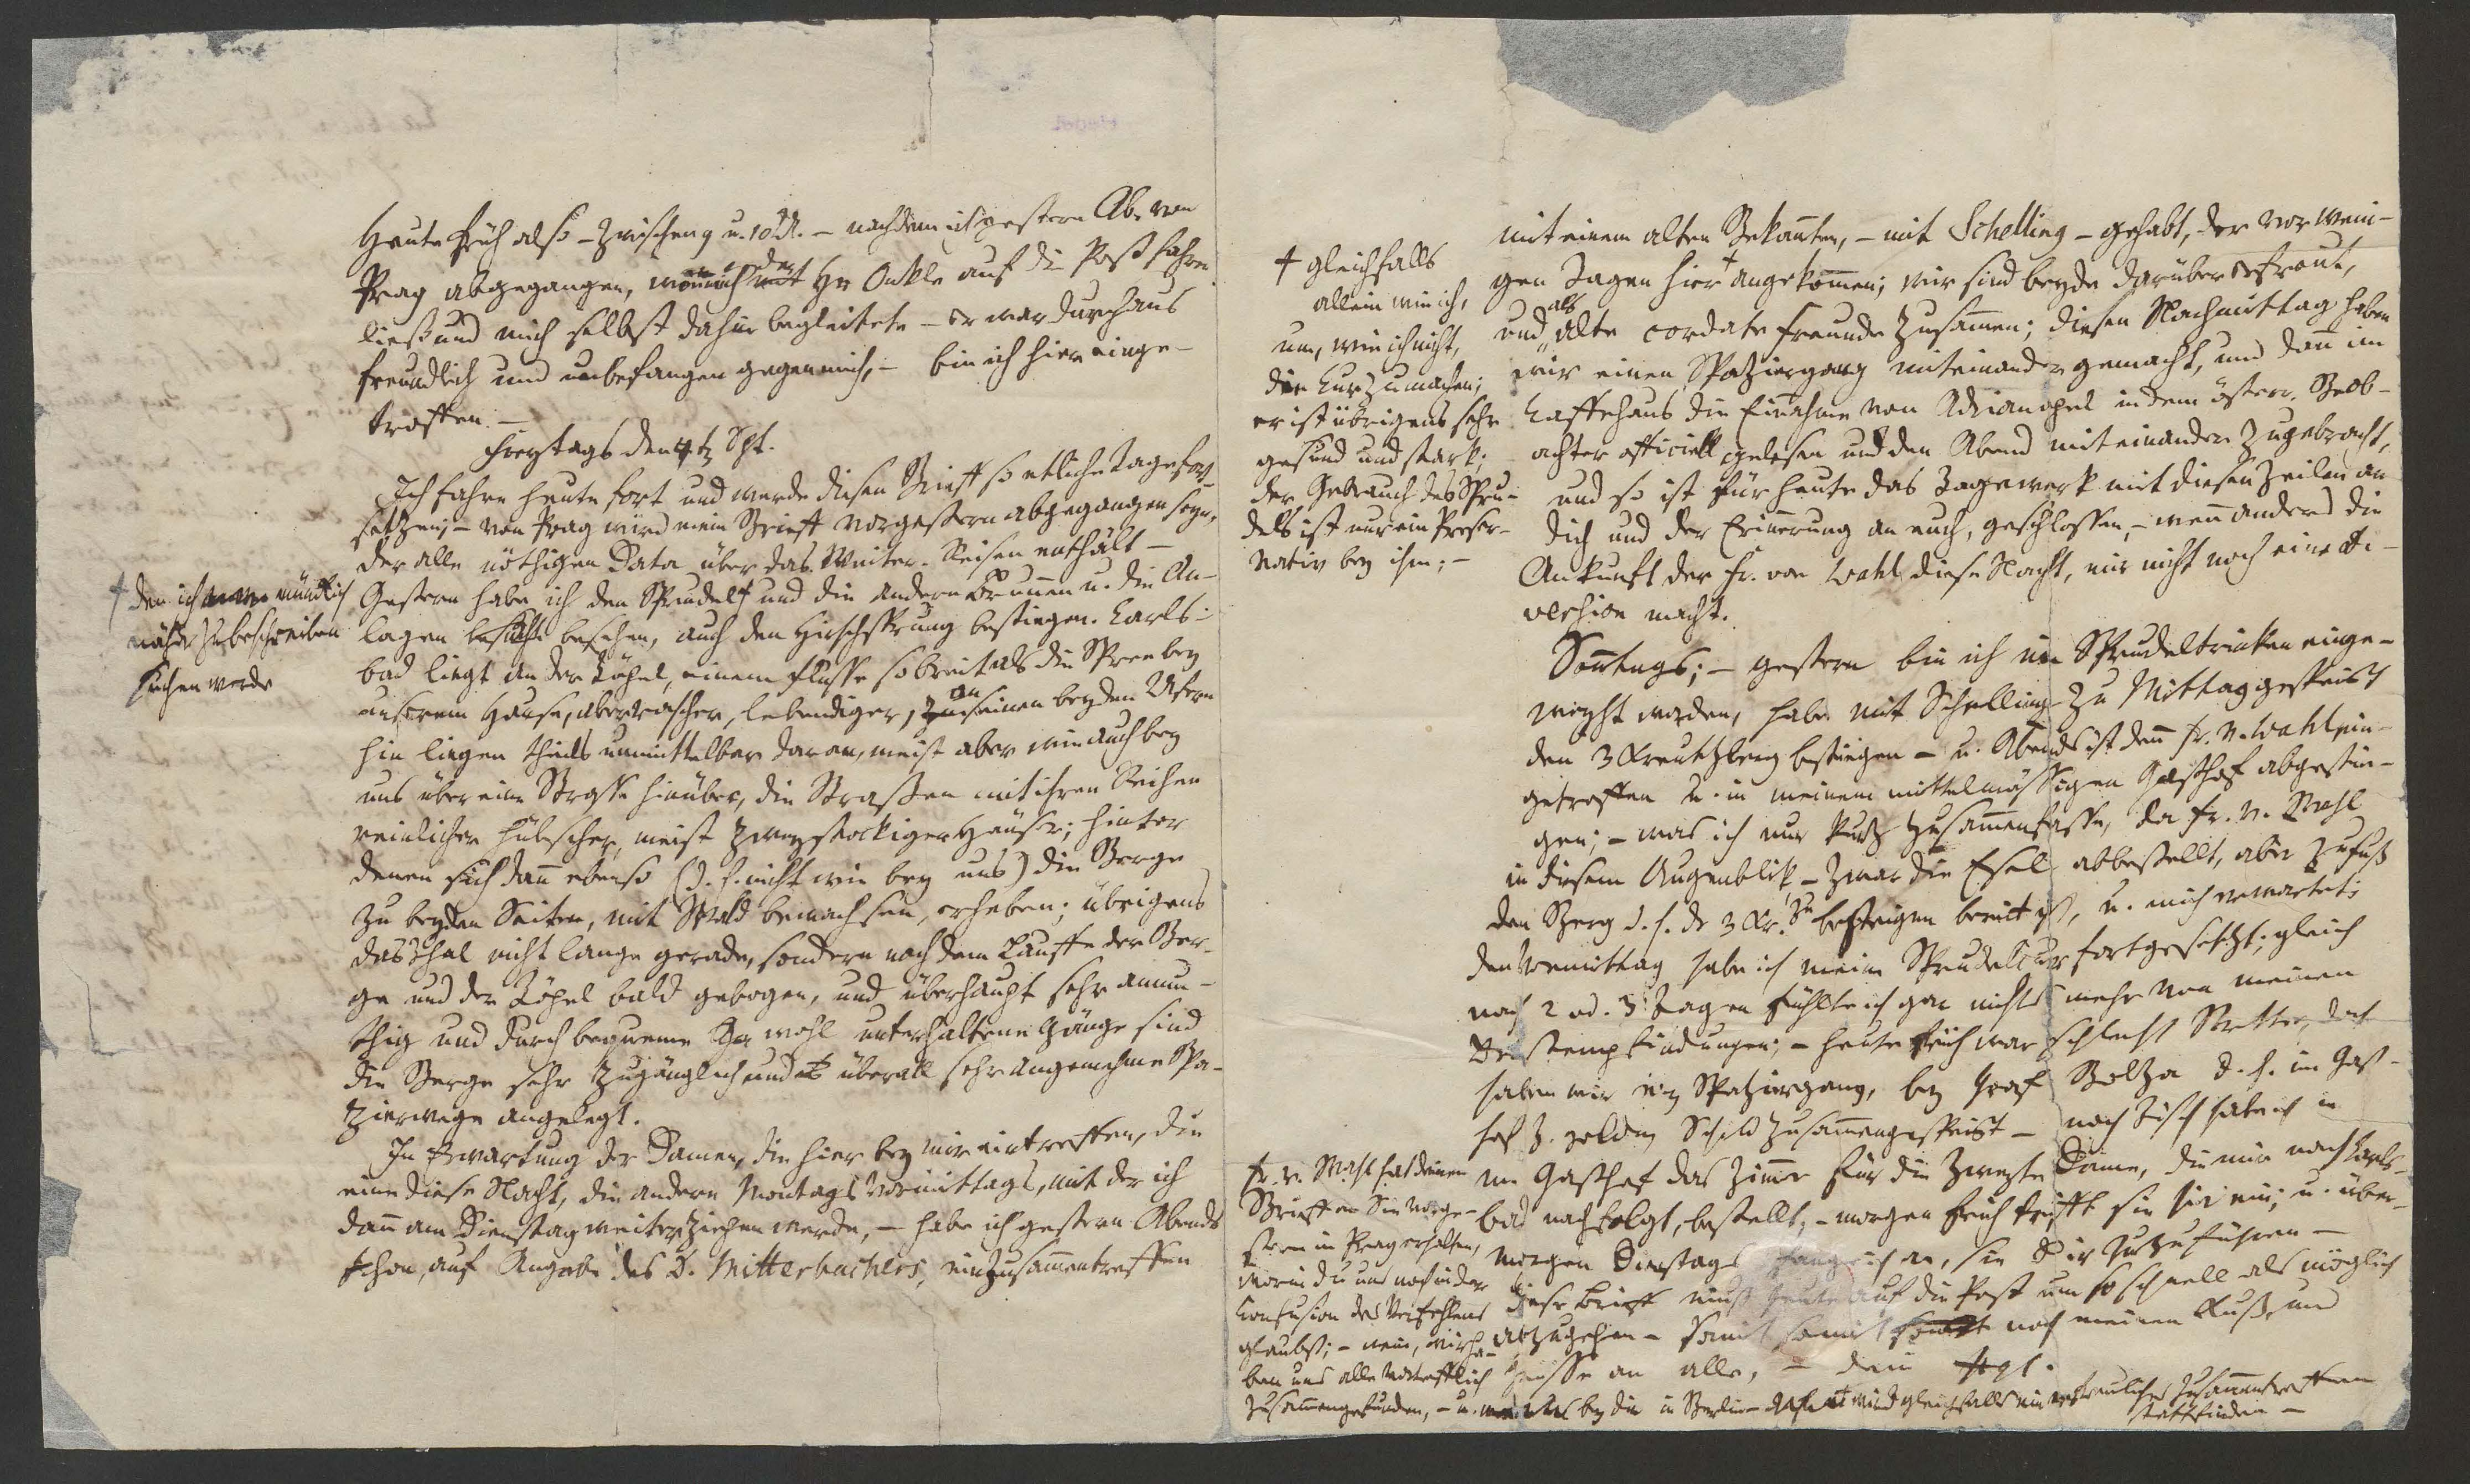 Heute früh also – zwischen 9 u. 10 U. – nachdem ich gestern Ab. von
Prag abgegangen, wohin mich der Hr Onkle auf die Post fahren
ließ und mich selbst dahin begleitete – er war durchaus
freundlich und unbefangen gegen mich, – bin ich hier einge-
troffen. –
Freytags den 4t Spt.
Ich fahre heute fort und werde diesen Brieff so etliche Tage fort-
setzen; – von Prag wird mein Brieff vorgestern abgegangen seyn,
der alle nöthigen Data über das Weiter-Reisen enthält –
Gestern habe ich den Sprudel † und die andern Brunnen u. die An-
lagen besucht besehen, auch den Hirschsprung bestiegen. Carls-
bad liegt an der Töpel, einem Flusse so breit als die Spree bey
unserem Hause, aber rascher, lebendiger, an seinen beyden Ufern
hin liegen theils unmittelbar daran, meist aber wie auch bey
uns über eine Strasse hinüber, die Straßen mit ihren Reihen
reinlicher hübscher, meist zweystockiger Häuser; hinter
denen sich dann ebenso (d. h. nicht wie bey uns) die Berge
zu beyden Seiten, mit Wald bewachsen, erheben; übrigens
das Thal nicht lange gerade, sondern nach dem Lauffe der Ber-
ge und der Töpel bald gebogen, und überhaupt sehr anmu-
thig und durch bequeme wohl unterhaltene Gänge sind
die Berge sehr zugänglich und überall sehr angenehme Spa-
zierwege angelegt.
In Erwartung der Damen, die hier bey mir eintreffen, die
eine diese Nacht, die andere Montags Vormittags, mit der ich
dann am Dienstag weiterziehen werde, – habe ich gestern Abends
schon, auf Angabe des D. Mitterbachers, ein Zusammentreffen
† den ich mündlich
näher zu beschreiben
suchen werde
mit einem alten Bekannten, – mit Schelling – gehabt, der vor weni-
gen Tagen hier † angekommen; wir sind beyde darüber erfreut,
und als alte cordate Freunde zusammen; diesen Nachmittag haben
wir einen Spatziergang miteinander gemacht, und dann im
Kaffehaus die Einnahme von Adrianopel in dem österr. Beob-
achter officiell gelesen und den Abend miteinander zugebracht,
und so ist für heute das Tagewerk mit diesen Zeilen an
dich und der Erinnerung an euch, geschlossen, – wenn anders die
Ankunft der Fr. von Wahl diese Nacht, mir nicht noch eine Di-
version macht.
† gleichfalls
allein wie ich,
um, wie ich nicht,
die Cur zu machen;
er ist übrigens sehr
gesund und stark;
der Gebrauch des Spru-
dels ist nur ein Preser-
vativ bey ihm; –
Sonntags; – gestern bin ich im Sprudeltrinken einge-
weyht worden, habe mit Schelling zu Mittag gespeist
den 3 Kreutzberg bestiegen – u. Abends ist denn Fr. v. Wahl ein-
getroffen u. in meinem mittelmässigen Gasthof abgestie-
gen; – was ich nur kurz zusammenfasse, da Fr. v. Wahl
in diesem Augenblik – zwar die Esel abbestellt, aber zu Fuß
den Berg d. h. die 3 Kr. zu besteigen bereit ist, u. mich erwartet;
den Vormittag habe ich meine Sprudelcur fortgesetzt; gleich
nach 2 od. 3 Tagen fühlte ich gar nichts mehr von meinen
Brustempfindungen; – heute früh war schlecht Wetter, doch
haben wir ein Spatziergang, bey Graf Bolza d. h. im Gast-
hof z. goldn Schild zusammengespeist – nach Tisch habe ich in
m. Gasthof das Zimmer für die zweyte Dame, die mir nach Carls-
bad nachfolgt, bestellt, – morgen früh trifft sie hier ein; u. über-
morgen Dienstags fange ich an, sie Dir zuzuführen –
dieser Brieff muß heute auf die Post um so schnell als möglich
abzugehen – somit noch meinen Kuß, und
Grüsse an alle, – dein Hgl.
Fr. v. Wahl hat deinen
Brieff an Sie vorge-
stern in Prag erhalten,
worin du uns noch in der
Confusion des Verfehlens
glaubst; – nein, wir ha-
ben uns alle vortrefflich
zusammengefunden, – u. bey dir in Berlin wird gleichfalls ein erfreuliches Zusammentreffen
stattfinden –